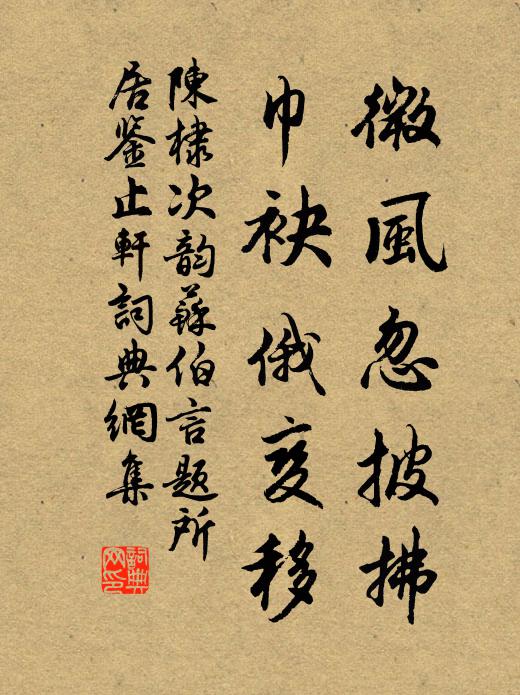 微風忽披拂
巾袂俄变移
陳棣次韵蘇伯言題所
居鉴止軒詞典網集
詞典網印